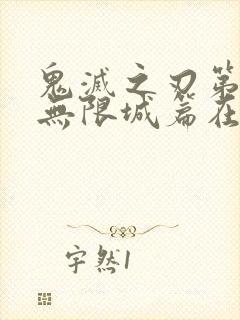 鬼滅之刃第
無限城篇在
宇然1